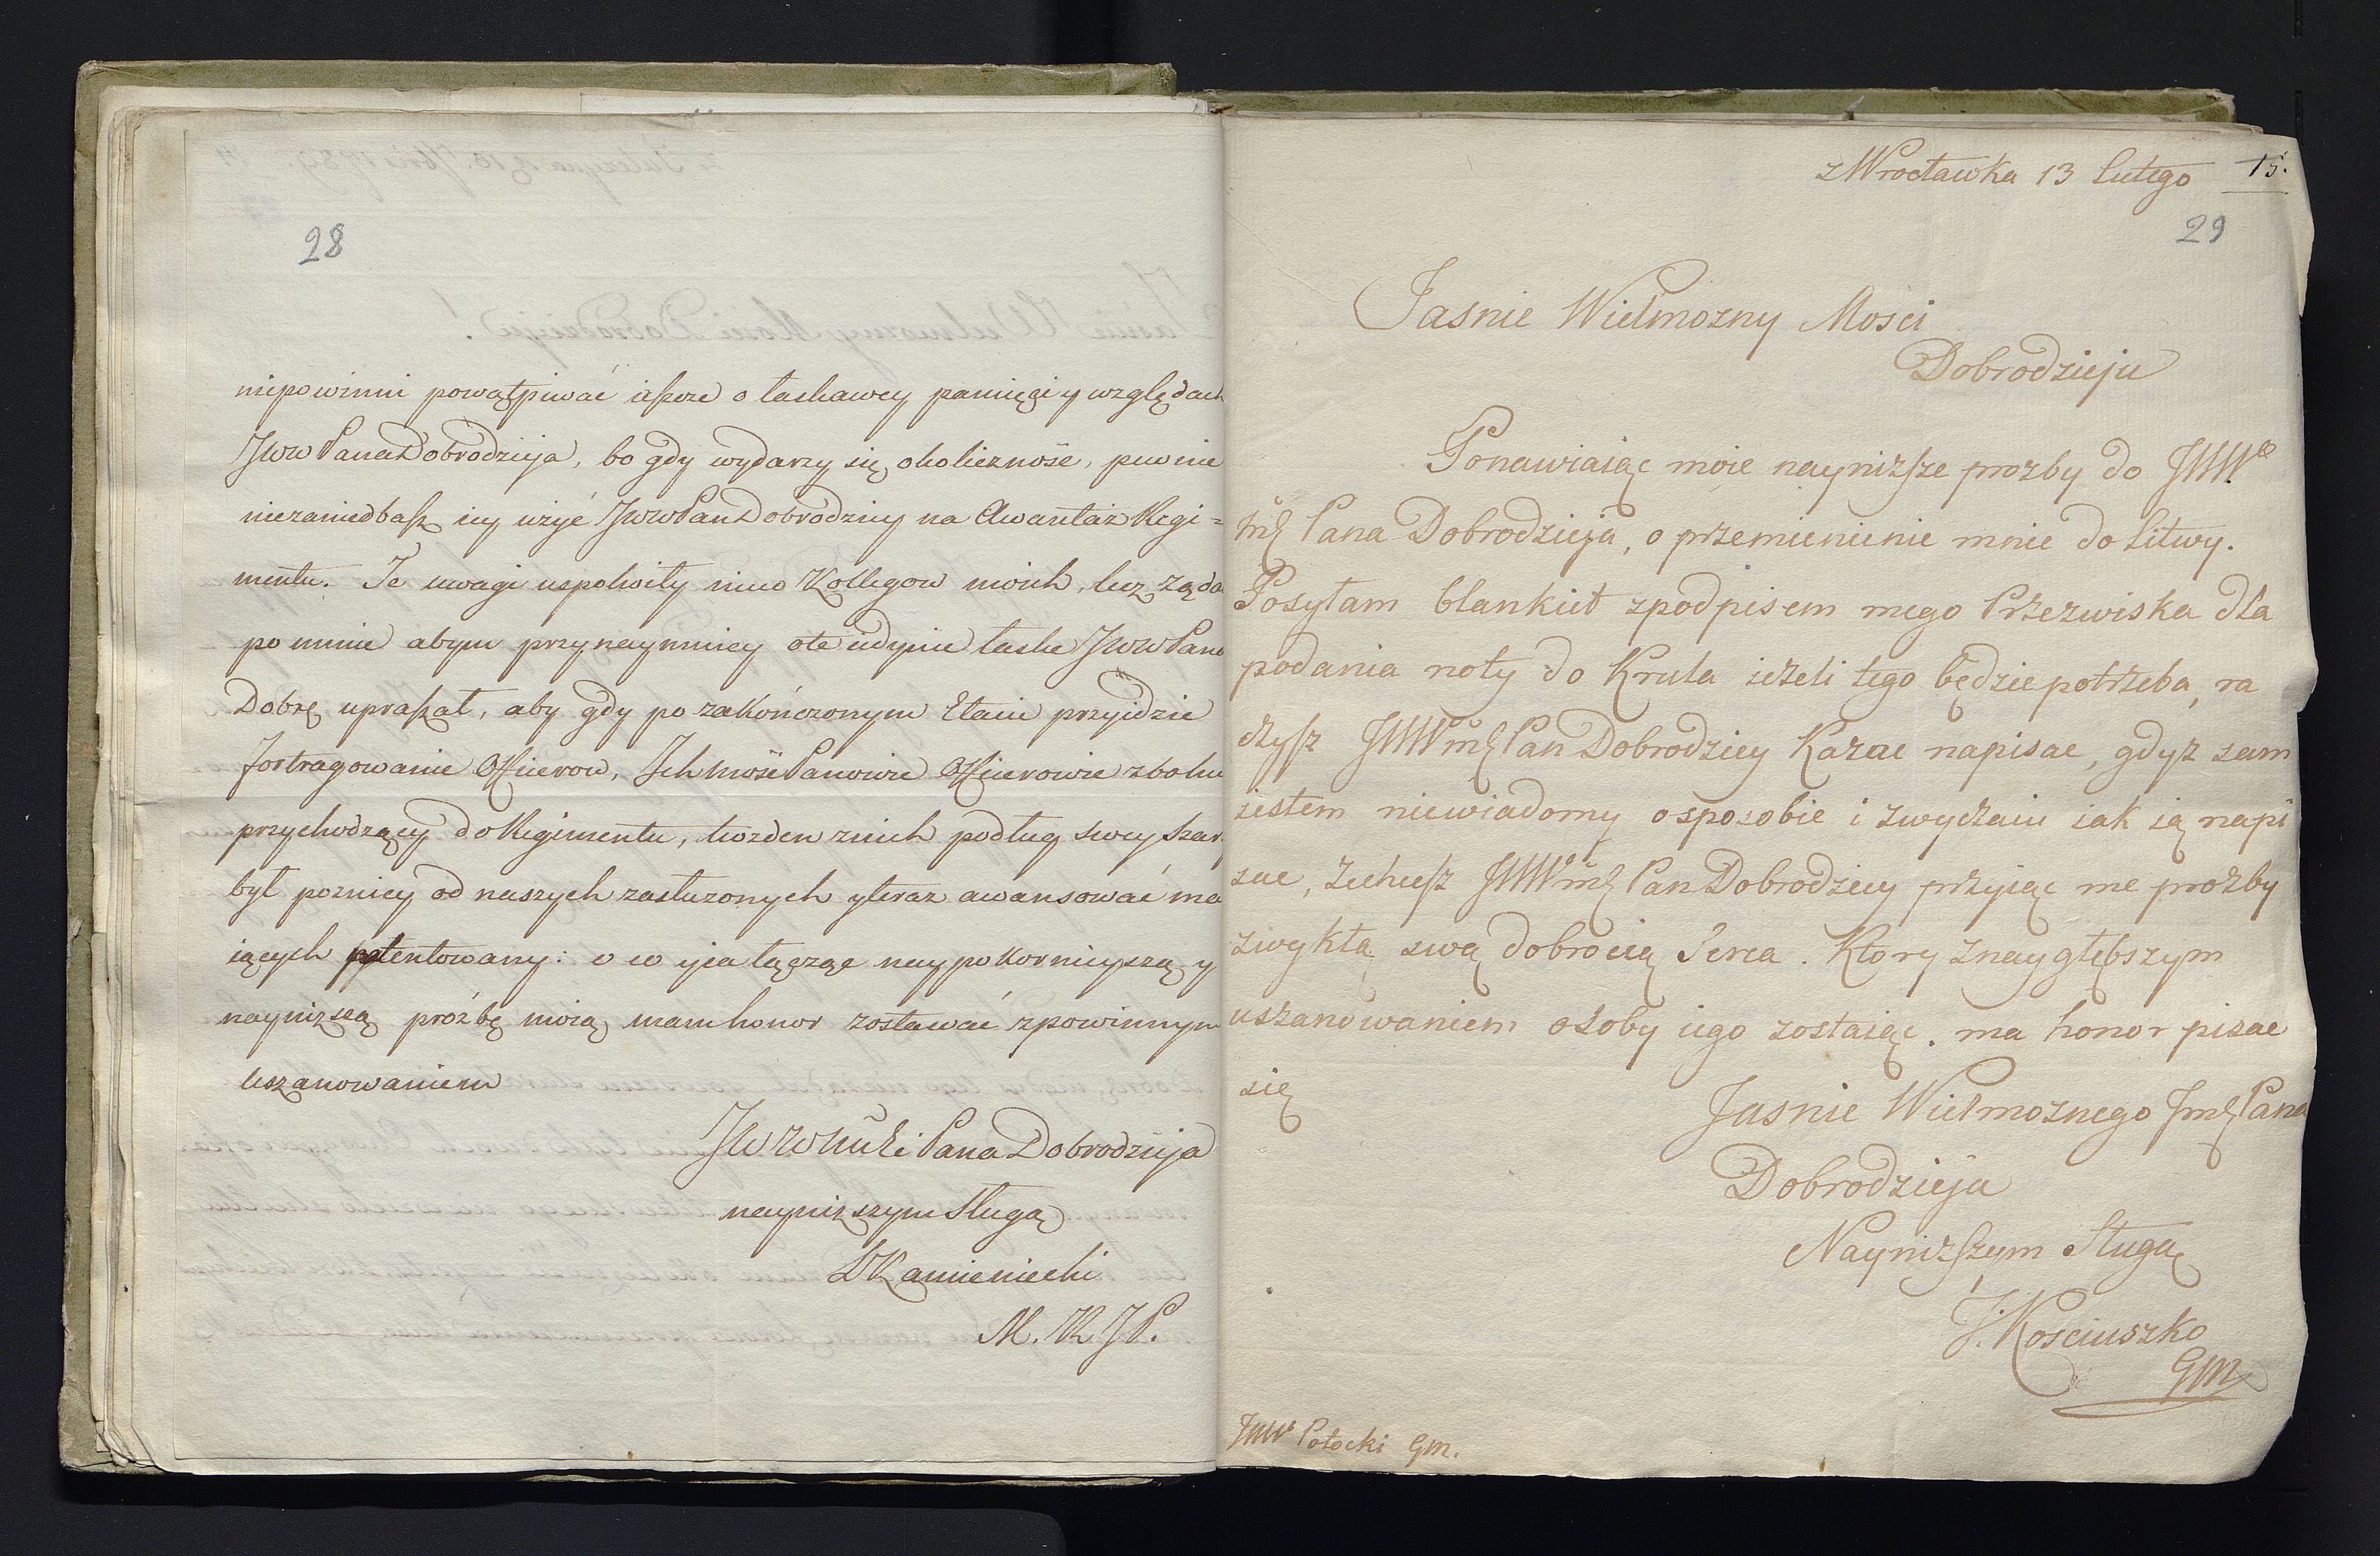 28
niepowinni powątpiwać ieszcze o łaskawey pamięci y względach
JWW Pana Dobrodzieja, bo gdy wydarzy się okoliczność, pewnie
niezaniedbasz iey użyć JWW Pan Dobrodziey na Awantaż Regi=
mentu. Te uwagi uspokoiły nieco Kollegow moich, lecz żąda
po mnie abym przynaymniey o te iedynie łaskę JWW Pana
Dobrę upraszał, aby gdy po zakończonym Etaiu przyidzie
Fortragowanie Officerow, Ichmość Panowie Officerowie z boku
przychodzący do Regimentu, kożden z nich podług swey szar
był pozniey od naszych zasłużonych y teraz awansować ma
iących patentowany: o co iea łącząc naypokornieyszą y
nayniższą próźbę moią mam honor zostawać z powinnym
uszanowaniem
Pana Dobrodzieja
nayniższym Sługą
Kamieniecki
M. K J P.
z Wrocławka 13 Lutego
15.
29
Jasnie Wielmozny Mosci
Dobrodzieju
Ponawiaiąc moie nayniższe prozby do JWW
Pana Dobrodzieja, o przemienienie mnie do Litwy.
Posyłam blankiet z podpisem mego Przezwiska dla
podania noty do Krula ieżeli tego będzie potrzeba, ra
czysz JWW Pan Dobrodziey Kazac napisac, gdyz sam
iestem niewiadomy o sposobie i zwyczaiu iak ią napi
sac, zechcesz JWW Pan Dobrodziey przyiąc me prozby
zwykłą swą dobrocią Serca. Ktory z naygłębszym
uszanowaniem osoby iego zostaiąc. ma honor pisac
się
Jasnie Wielmoznego Pana
Dobrodzieja
Nayniższym Sługą
T: Kosciuszko
GM
JWW Potocki GM.